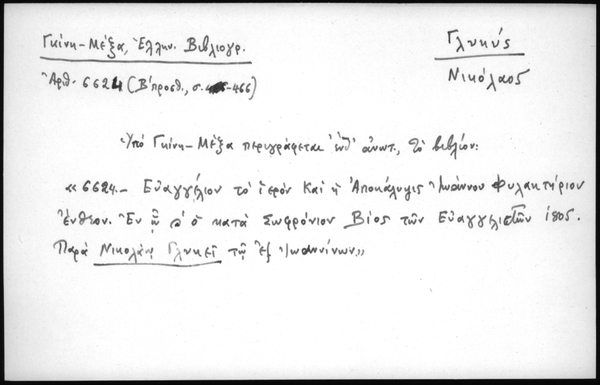 Γκίνη-Μέξα, Ἑλλην. Βιβλιογρ.
Γλυκύς
Νικόλαος
Ἀριθ. 6624 (Β'προσθ., σ. -466)
Ὑπό Γκίνη-Μέξα περιγράφεται ἐνθ' ἀνωτ., τό βιβλίον:
«6624.- Εὐαγγέλιον τό ἱερόν καί ἡ Ἀποκάλυψις Ἰωάννου Φυλακτήριον
ἔνθεον. Ἐν ᾧ ὁ κατά Σωφρόνιον Βίος τῶν Εὐαγγελιστῶν 1805.
Παρά Νικολάῳ Γλυκεῖ τῷ ἐξ Ἰωαννίνων»